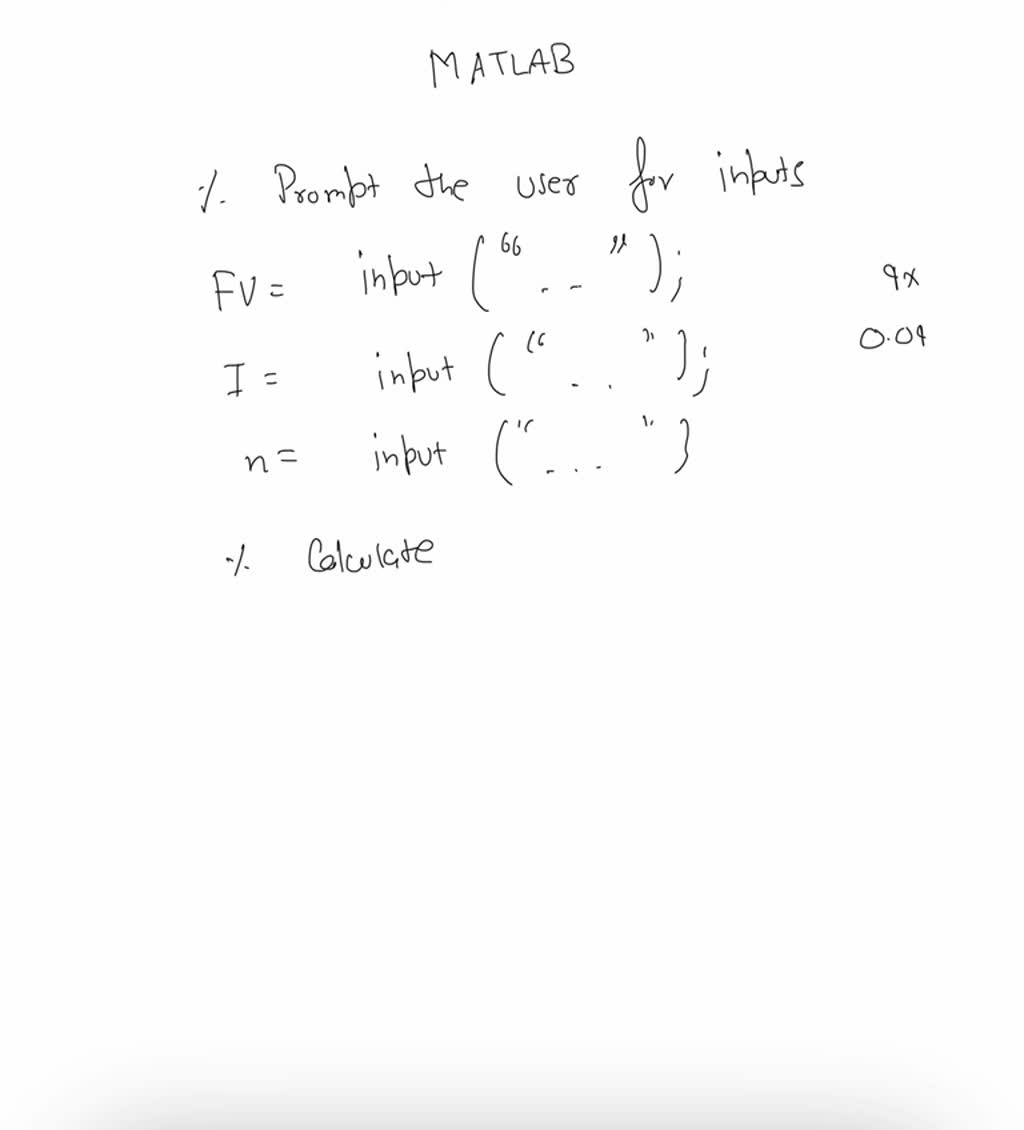 MATLAB
% Prompt the user for inputs
FV = input (" .. ");
9%
I = input (" .. ");
0.09
n = input (" ... ")
% Calculate